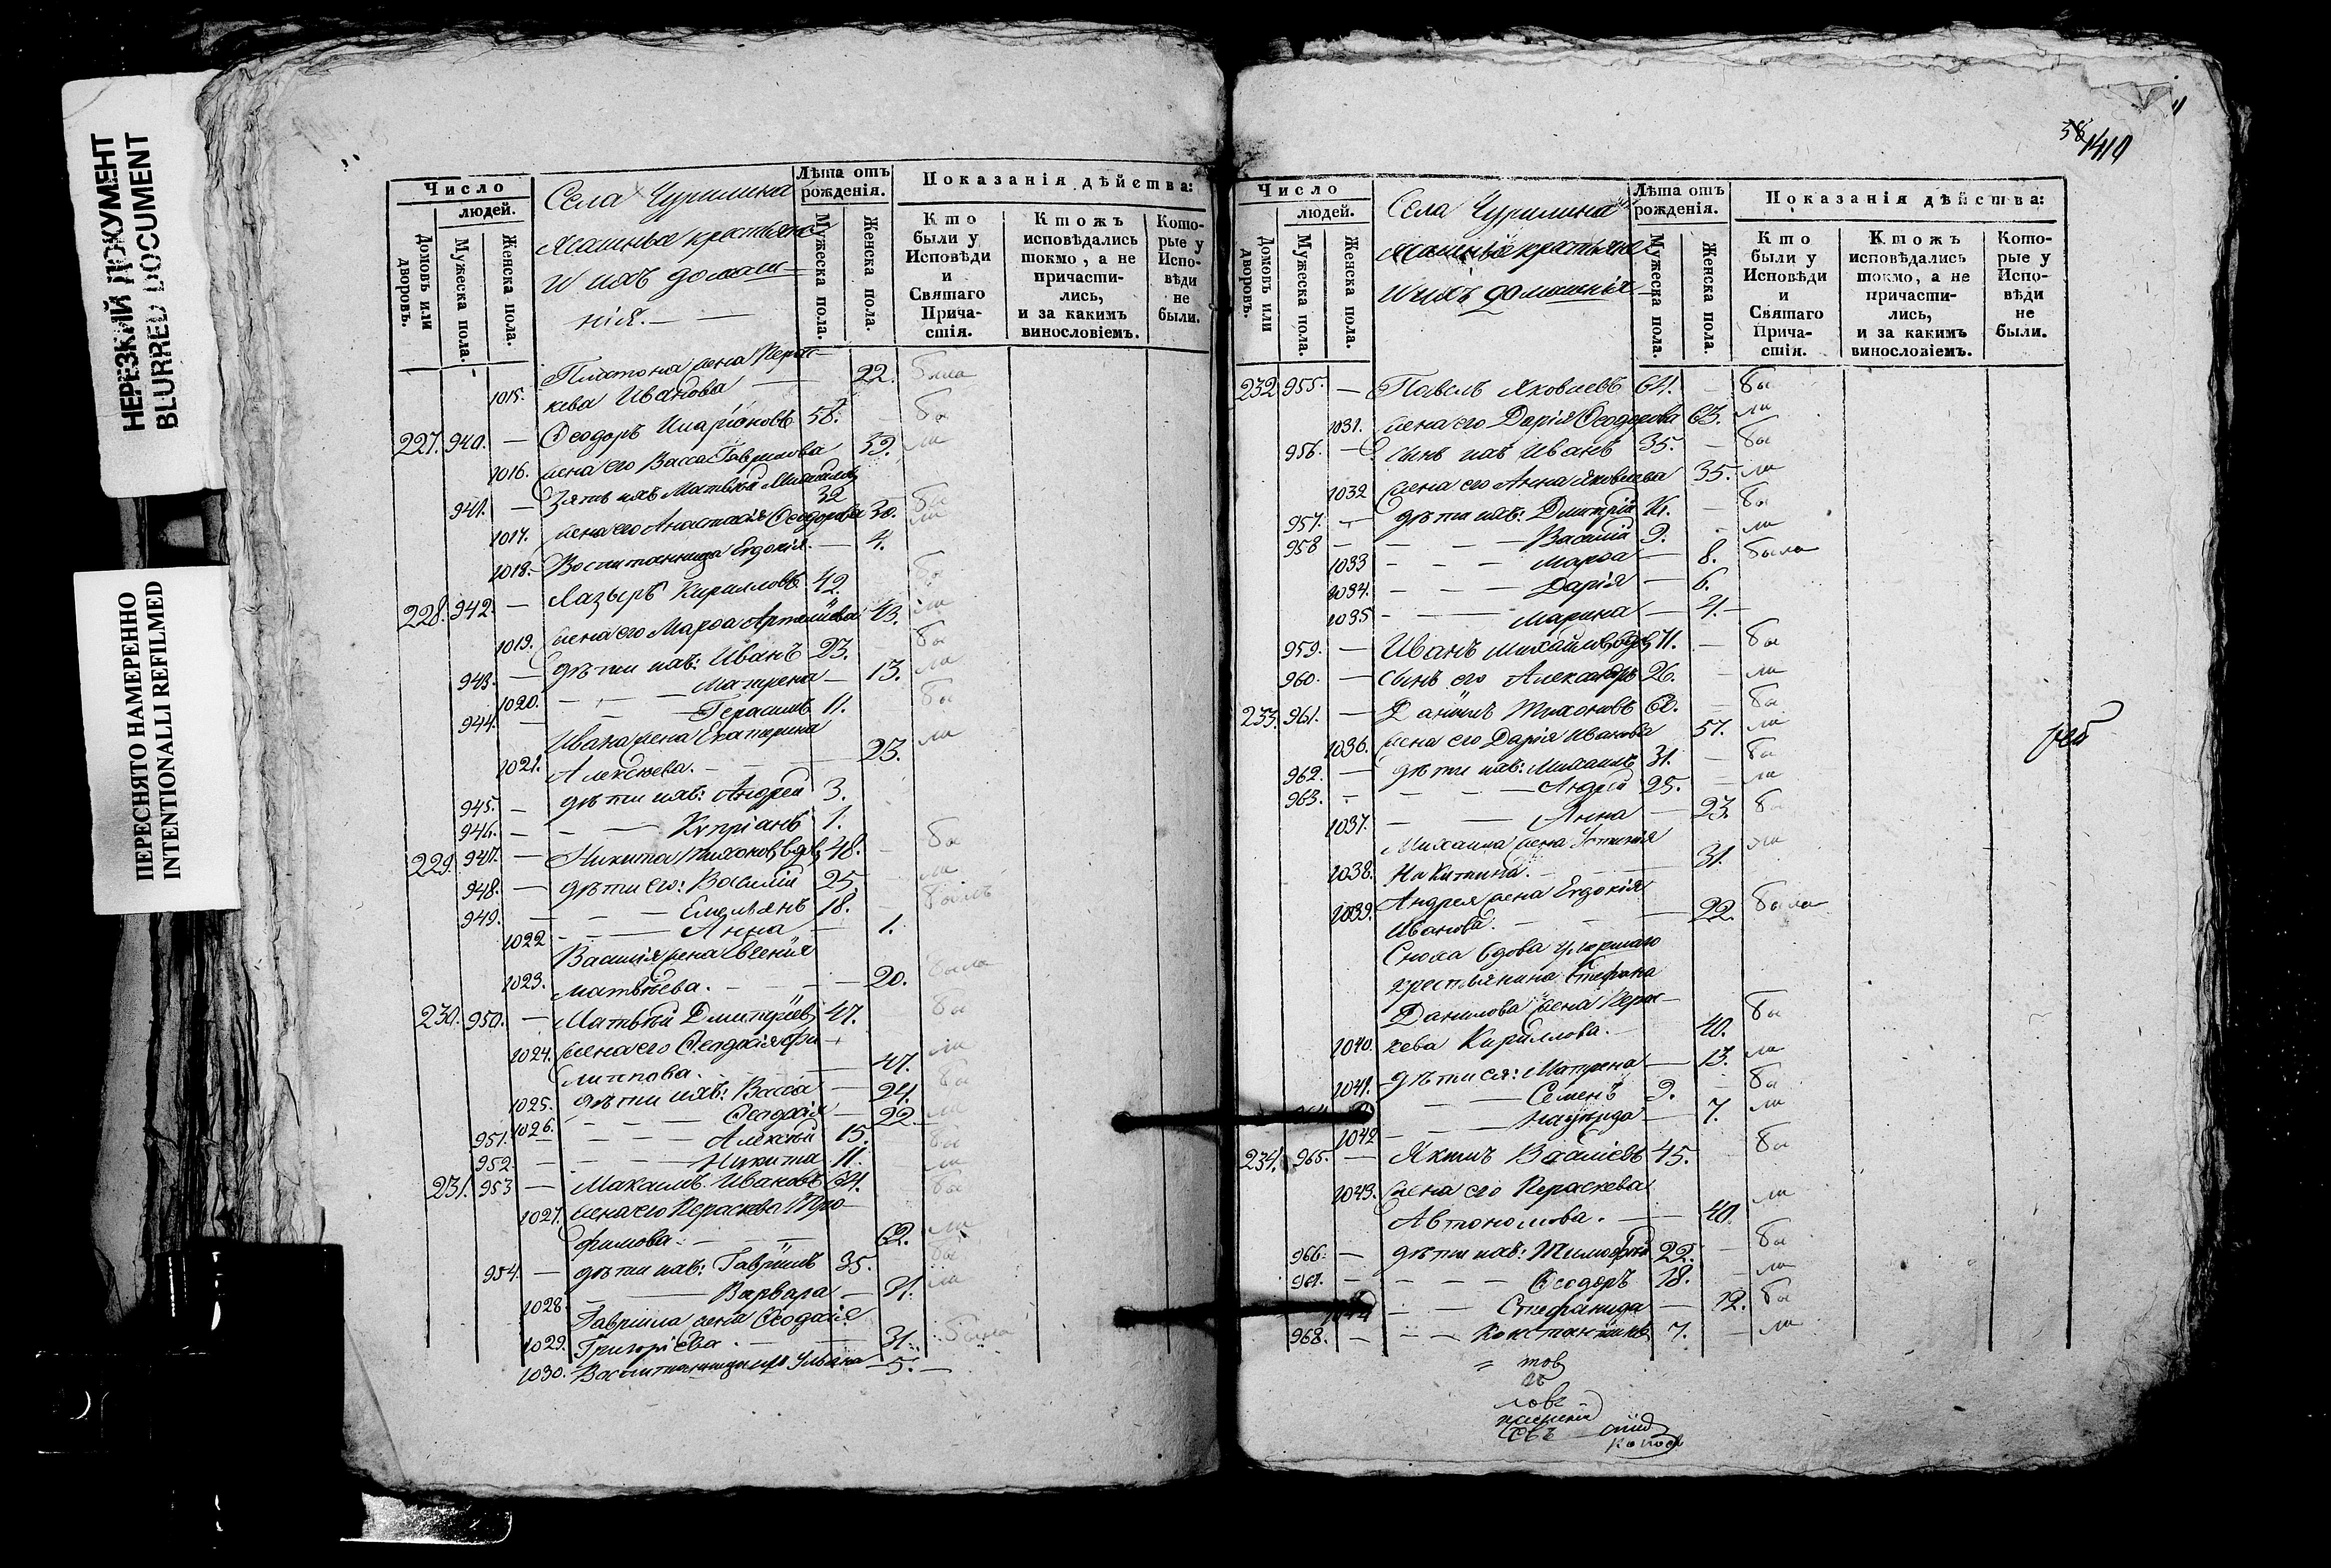 НЕРЕЗКИЙ ДОКУМЕНТ
BLURRED DOCUMENT
ПЕРЕСНЯТО НАМЕРЕННО
INTENTIONALLI REFILMED
Число людей.
Домовъ или дворовъ.
Мужеска пола.
Женска пола.
Села Чурилина
Ясашныя крестьяне
и ихъ домаш-
нія. —
Лѣта отъ рожденія.
Мужеска пола.
Женска пола.
Показанія дѣйства:
Кто были у Исповѣди и Святаго Прича-стія.
Ктожъ исповѣдались токмо, а не причасти-лись, и за какимъ винословіемъ.
Кото-рые у Испо-вѣди не были.
Платона жена Перас-
1015. кева Иванова — 22. была
227. 940. — Ѳеодоръ Иларіоновъ 58. — бы
1016. жена его Васса Гаврилова 59. ли
941. — Зять ихъ Матвѣй Михайловъ 32 бы
1017. жена его Анастасія Ѳеодорова 30. ли
1018. Воспитанница Евдокія. — 4.
228. 942. — Лазырь Кирилловъ 42. бы
1019. жена его Марѳа Артемьева 43. ли
943. — дѣти ихъ: Иванъ 23. — бы
1020. — — Матрена — 13. ли
944. — — Герасимъ 11. бы
Ивана жена Екатерина
1021. Алексѣева. — 23. ли
945. — дѣти ихъ: Андрей 3.
946. — — Купріанъ 1.
229. 947. — Никита Тихоновъ вдовъ 48. — бы
948. — дѣти его: Василій 25. — ли
949. — — Емельянъ 18. — былъ
1022 — — Анна — 1.
Василія жена Евгенія
1023. Матвѣева. — 20. была
230. 950. — Матвѣй Дмитріевъ 47. бы
1024. жена его Ѳеодосія Фи-
липпова. — 47. ли
1025. дѣти ихъ: Васса — 24. бы
1026. — — Ѳеодосія — 22. ли
951. — — Алексѣй 15. бы
952. — — Никита 11. ли
231. 953 — Максимъ Ивановъ 64. бы
1027. жена его Пераскева Тро-
фимова. — 62. ли
954. — дѣти ихъ: Гавріилъ 35. бы
1028. — Варвара — 21. ли
Гавріила жена Ѳеодосія
1029. Григорьева. — 31. была
1030. Воспитанница Ульяна — 5. —
38
Число людей.
Домовъ или дворовъ.
Мужеска пола.
Женска пола.
Села Чурилина
Ясашныя крестьяне
и ихъ домашнія
Лѣта отъ рожденія.
Мужеска пола.
Женска пола.
Показанія дѣйства:
Кто были у Исповѣди и Святаго Прича-стія.
Ктожъ исповѣдались токмо, а не причасти-лись, и за какимъ винословіемъ.
Кото-рые у Испо-вѣди не были.
232 955. — Павелъ Яковлевъ 64. — бы
1031. жена его Дарія Ѳеодорова 63. ли
956. — сынъ ихъ Иванъ 35. — бы
1032 жена его Анна Яковлева 35. ли
957. — дѣти ихъ: Дмитрій — бы
958 — — Василій 9. — ли
1033 — — Марѳа — 8. была
1034. — — Дарія — 6.
1035 — — Марина — 4. —
959. — Иванъ Михайловъ вдовъ 71. — бы
960. — сынъ его Александръ 26. — ли
233. 961. — Даніилъ Тихоновъ 60. — бы
1036. жена его Дарія Иванова 57. ли
962. — дѣти ихъ: Михаилъ 31. — бы
963. — — Андрей 25. — ли
1037. — — Анна — 23. бы
Михаила жена Устинія
1038. Никитина. — 31. ли
Андрея жена Евдокія
1039. Иванова. — 22. была
Сноха вдова умершаго
крестьянина Стефана
Данилова жена Перас-
1040. кева Кириллова. — 40. бы
1041. дѣти ея: Матрена — 13. ли
— — Семенъ 9. — бы
1042 — — — 7. ли
234. 965. — Якимъ Васильевъ 45. — бы
1043. жена его Пераскева
Автономова. — 40. ли
966. — дѣти ихъ: Тимоѳей 22. — бы
967. — — Ѳеодоръ 18. — ли
1044 — — Стефанида — 12. бы
968. — — Константинъ 7. — ли